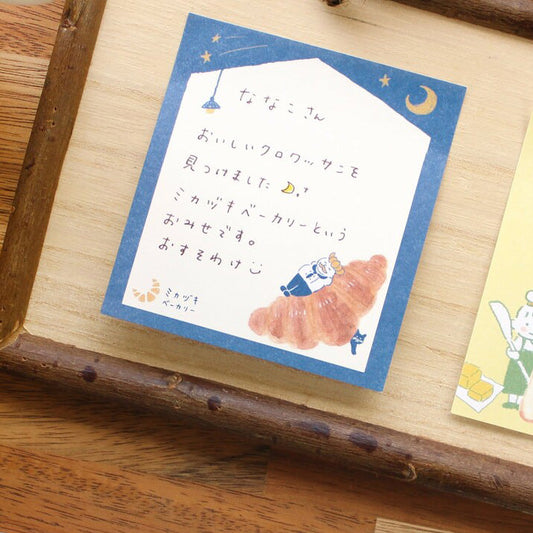 ななこさん
おいしいクロワッサンを
見つけました
ミカヅキベーカリーという
おみせです。
おすそわけ
ミカヅキ
ベーカリー